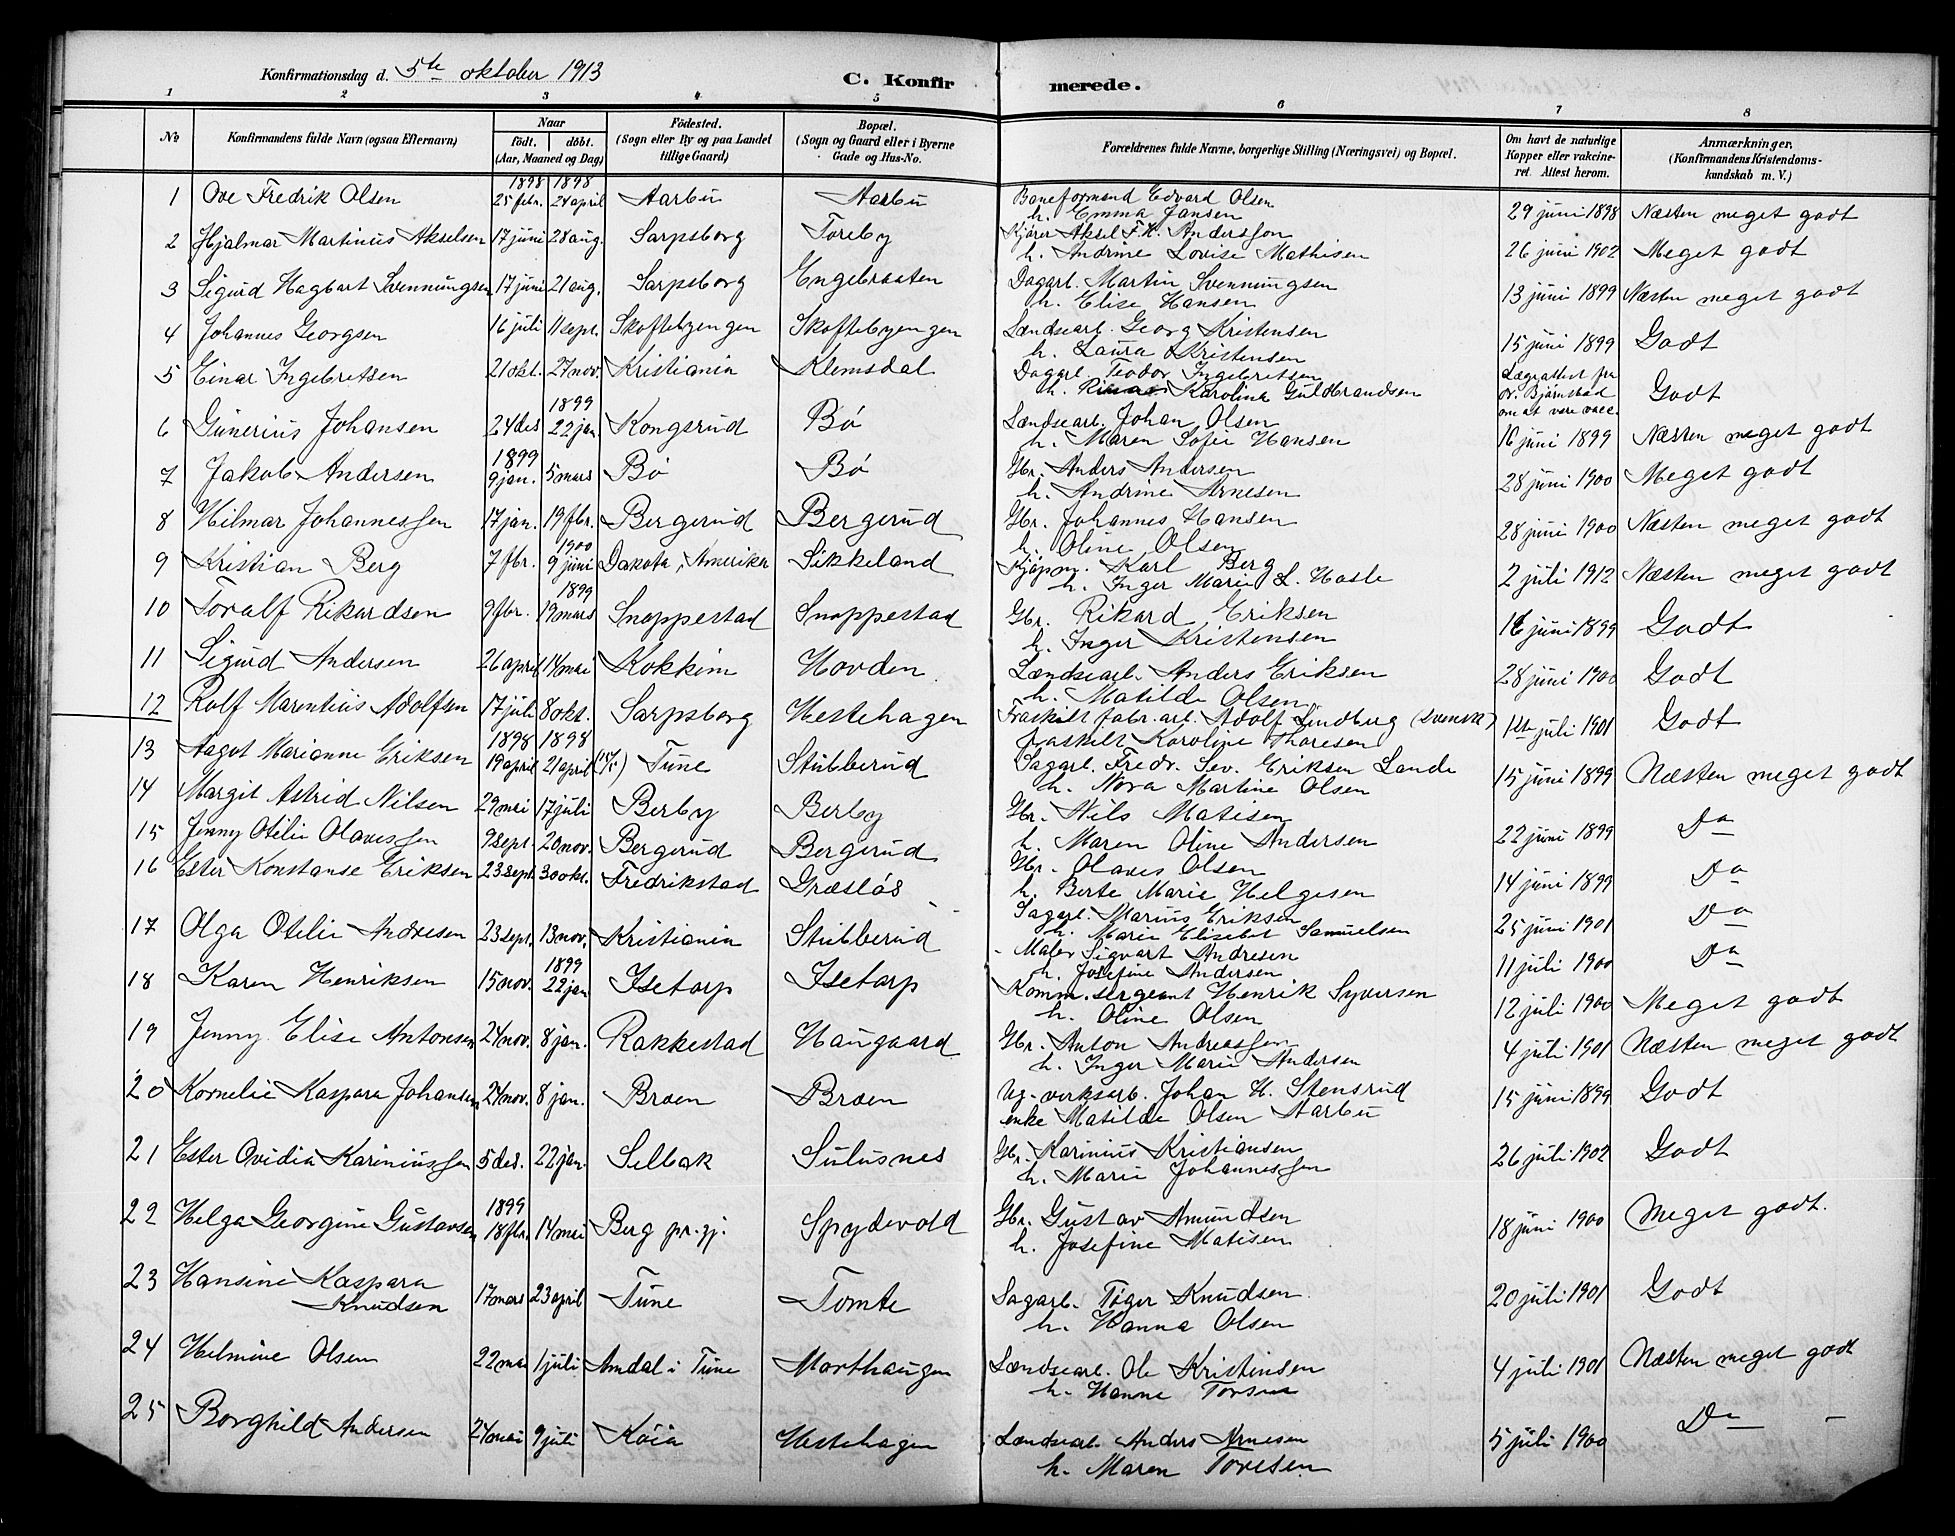 Konfirmationsdag d. 5te oktober 1913
C. Konfirmerede.
1 2 3 4 5 6 7 8
No Konfirmandens fulde Navn (ogsaa Efternavn) Naar født. døbt. (Aar, Maaned og Dag) Fødested. (Sogn eller By og paa Landet tillige Gaard) Bopæl. (Sogn og Gaard eller i Byerne Gade og Hus-No. Forældrenes fulde Navne, borgerlige Stilling (Næringsvei) og Bopæl. Om havt de naturlige Kopper eller vakcineret. Attest herom. Anmærkninger. (Konfirmandens Kristendomskundskab m. V.)
1 Ove Fredrik Olsen 1898 25 febr. 1898 24 april Aarbu Aarbu Baneformand Edvard Olsen h. Emma Jansen 29 juni 1898 Næsten meget godt
2 Hjalmar Martinus Akselsen 17 juni 28 aug. Sarpsborg Toreby Kjører Aksel F.H. Anderssen h. Andrine Lovise Mathisen 26 juni 1902 Meget godt
3 Sigurd Hagbart Svenningsen 17 juni 21 aug. Sarpsborg Engebraaten Dagarb. Martin Svenningsen h. Elise Hansen 13 juni 1899 Næsten meget godt
4 Johannes Georgsen 16 juli 11 sept. Skoftebyengen Skoftebyengen Lændsearb. Georg Kristensen h. Laura Kristensen 15 juni 1899 Godt
5 Einar Ingebretsen 21 okt. 27 nov. Kristiania Klemsdal Dagarb. Teodor Ingebretsen h. Karolina Guldbrandsen Lægeattest fra dr. Bjørnstad om at være vacc. Godt
6 Gunerius Johansen 24 des 1899 22 jan. Kongsrud Bø Lændsearb. Johan Olsen h. Maren Sofie Hansen 16 juni 1899 Næsten meget godt
7 Jakob Andersen 1899 9 jan. 5 mars Bø Bø Gbr. Anders Andersen h. Andrine Arnesen 28 juni 1900 Meget godt
8 Hilmar Johannessen 17 jan. 19 fbr. Bergerud Bergerud Gbr. Johannes Hansen h. Oline Olsen 28 juni 1900 Næsten meget godt
9 Kristian Berg 7 fbr. 1900 9 juni Dakota, Amerika Sikkeland Kjøpm. Karl Berg h. Inger Marie L. Hasle 2 juli 1912 Næsten meget godt
10 Toralf Rikardsen 9 fbr. 1899 19 mars Snoppestad Snoppestad Gbr. Rikard Eriksen h. Inger Kristensen 16 juni 1899 Godt
11 Sigurd Andersen 26 april 14 mai Kokkim Hovden Lændsearb. Anders Eriksen h. Matilde Olsen 28 juni 1900 Godt
12 Rolf Marentius Adolfsen 17 juli 8 okt. Sarpsborg Hestehagen Fraskilt fabr.arb. Adolf Lindberg (svensk) fraskilt Karoline Thoresen 1ste juli 1901 Godt
13 Aagot Marianne Eriksen 1898 19 april 1898 21 april Tune Stubberud Sagarb. Fredr. Sev. Eriksen Lande h. Nora Martine Olsen 15 juni 1899 Næsten meget godt
14 Margit Astrid Nilsen 29 mai 17 juli Berby Berby Gbr. Nils Matisen h. Maren Oline Andersen 22 juni 1899 Do
15 Jenny Otilie Olavessen 9 sept. 20 nov. Bergerud Bergerud Gbr. Olaves Olsen h. Berte Marie Helgesen 14 juni 1899 Do
16 Ester Konstanse Eriksen 23 sept. 30 okt. Fredrikstad Græsløs Sagarb. Marius Eriksen h. Marie Elisebet Samuelsen 25 juni 1901 Do
17 Olga Otelie Andresen 23 sept. 13 nov. Kristiania Stubberud Maler Sigvart Andresen h. Josefine Andersen 11 juli 1900 Do
18 Karen Henriksen 15 nov. 1899 22 jan Isetorp Isetorp Komm.sergeant Henrik Syversen h. Oline Olsen 12 juli 1900 Meget godt
19 Jenny Elise Antonsen 24 nov. 8 jan. Rakkestad Haugaard Gbr. Anton Andreassen h. Inger Marie Andersen 4 juli 1901 Næsten meget godt
20 Kornelie Kaspara Johansen 24 nov. 8 jan. Braen Braen Ug. verksarb. Johan H. Stensrud enke Matilde Olsen Aarbu 15 juni 1899 Godt
21 Ester Ovidia Kariniussen 5 des. 22 jan. Selbak Sulusnes Gbr. Karinius Kristiansen h. Marie Johannessen 26 juli 1902 Godt
22 Helga Georgine Gustavsen 1899 18 fbr. 14 mai Berg pr.gj. Spydevold Gbr. Gustav Amundsen h. Josefine Matisen 18 juni 1900 Meget godt.
23 Hansine Kaspara Knudsen 17 mars 23 april Tune Tomte Sagarb. Tøger Knudsen h. Hanna Olsen 20 juli 1901 Godt
24 Helmine Olsen 22 mai 1 juli Amdal i Tune Morthaugen Lændsearb. Ole Kristinsen h. Hanne 4 juli 1901 Næsten meget godt
25 Borghild Andersen 24 mai 9 juli Køia Hestehagen Lændsearb. Anders Arnesen h. Maren Toresen 5 juli 1900 Do